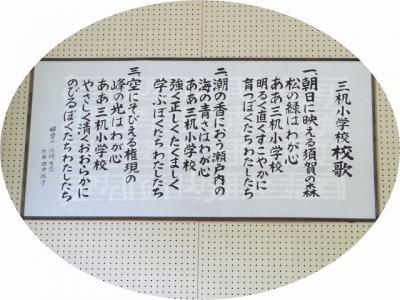 三机小学校 校歌
一、朝日に映える須賀の森
松の緑はわが心
ああ三机小学校
明るく直くすこやかに
育つぼくたちわたしたち
二、潮の香におう瀬戸内の
海の青さはわが心
ああ三机小学校
強く正しくたくましく
学ぶぼくたちわたしたち
三、空にそびえる権現の
峰の光はわが心
ああ三机小学校
やさしく清くおおらかに
のびるぼくたちわたしたち